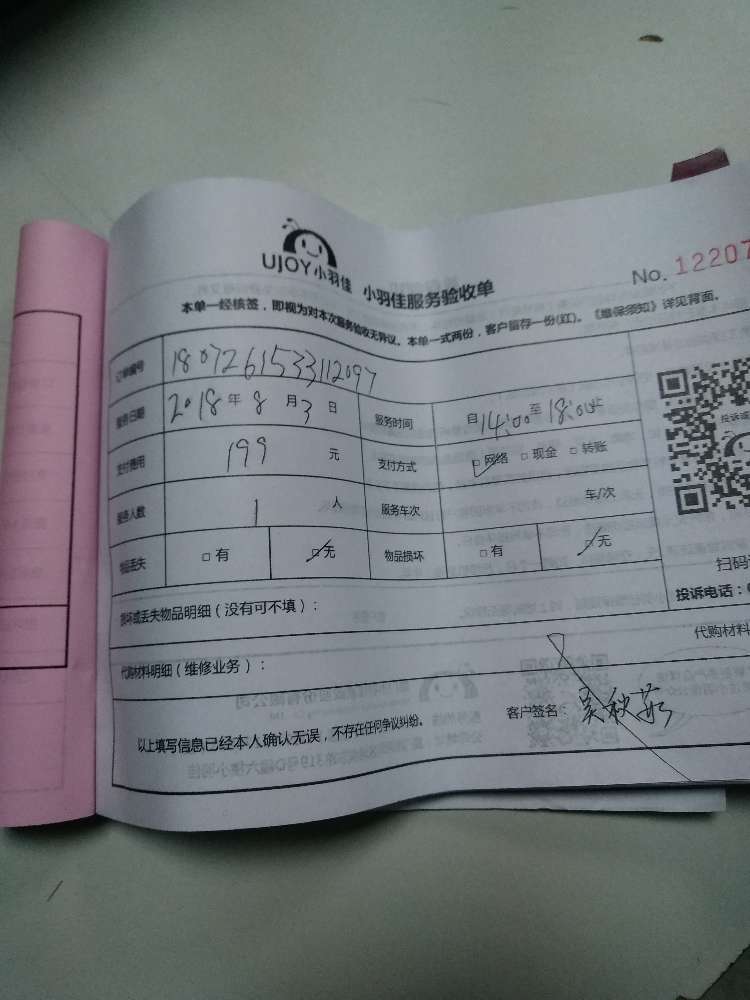 UJOY小羽佳 小羽佳服务验收单
No. 12207
本单一经核签，即视为对本次服务验收无异议。本单一式两份，客户留存一份(红)。《维保须知》详见背面。
订单编号 1807261533112097
服务日期 2018年8月3日 服务时间 自14:00至18:00止
支付费用 199 元 支付方式 □网络 □现金 □转账
服务人数 1 人 服务车次 车/次
物品丢失 □有 □无 物品损坏 □有 □无
投诉
扫码
投诉电话：
损坏或丢失物品明细（没有可不填）：
代购材料
代购材料明细（维修业务）：
以上填写信息已经本人确认无误，不存在任何争议纠纷。 客户签名：吴秋